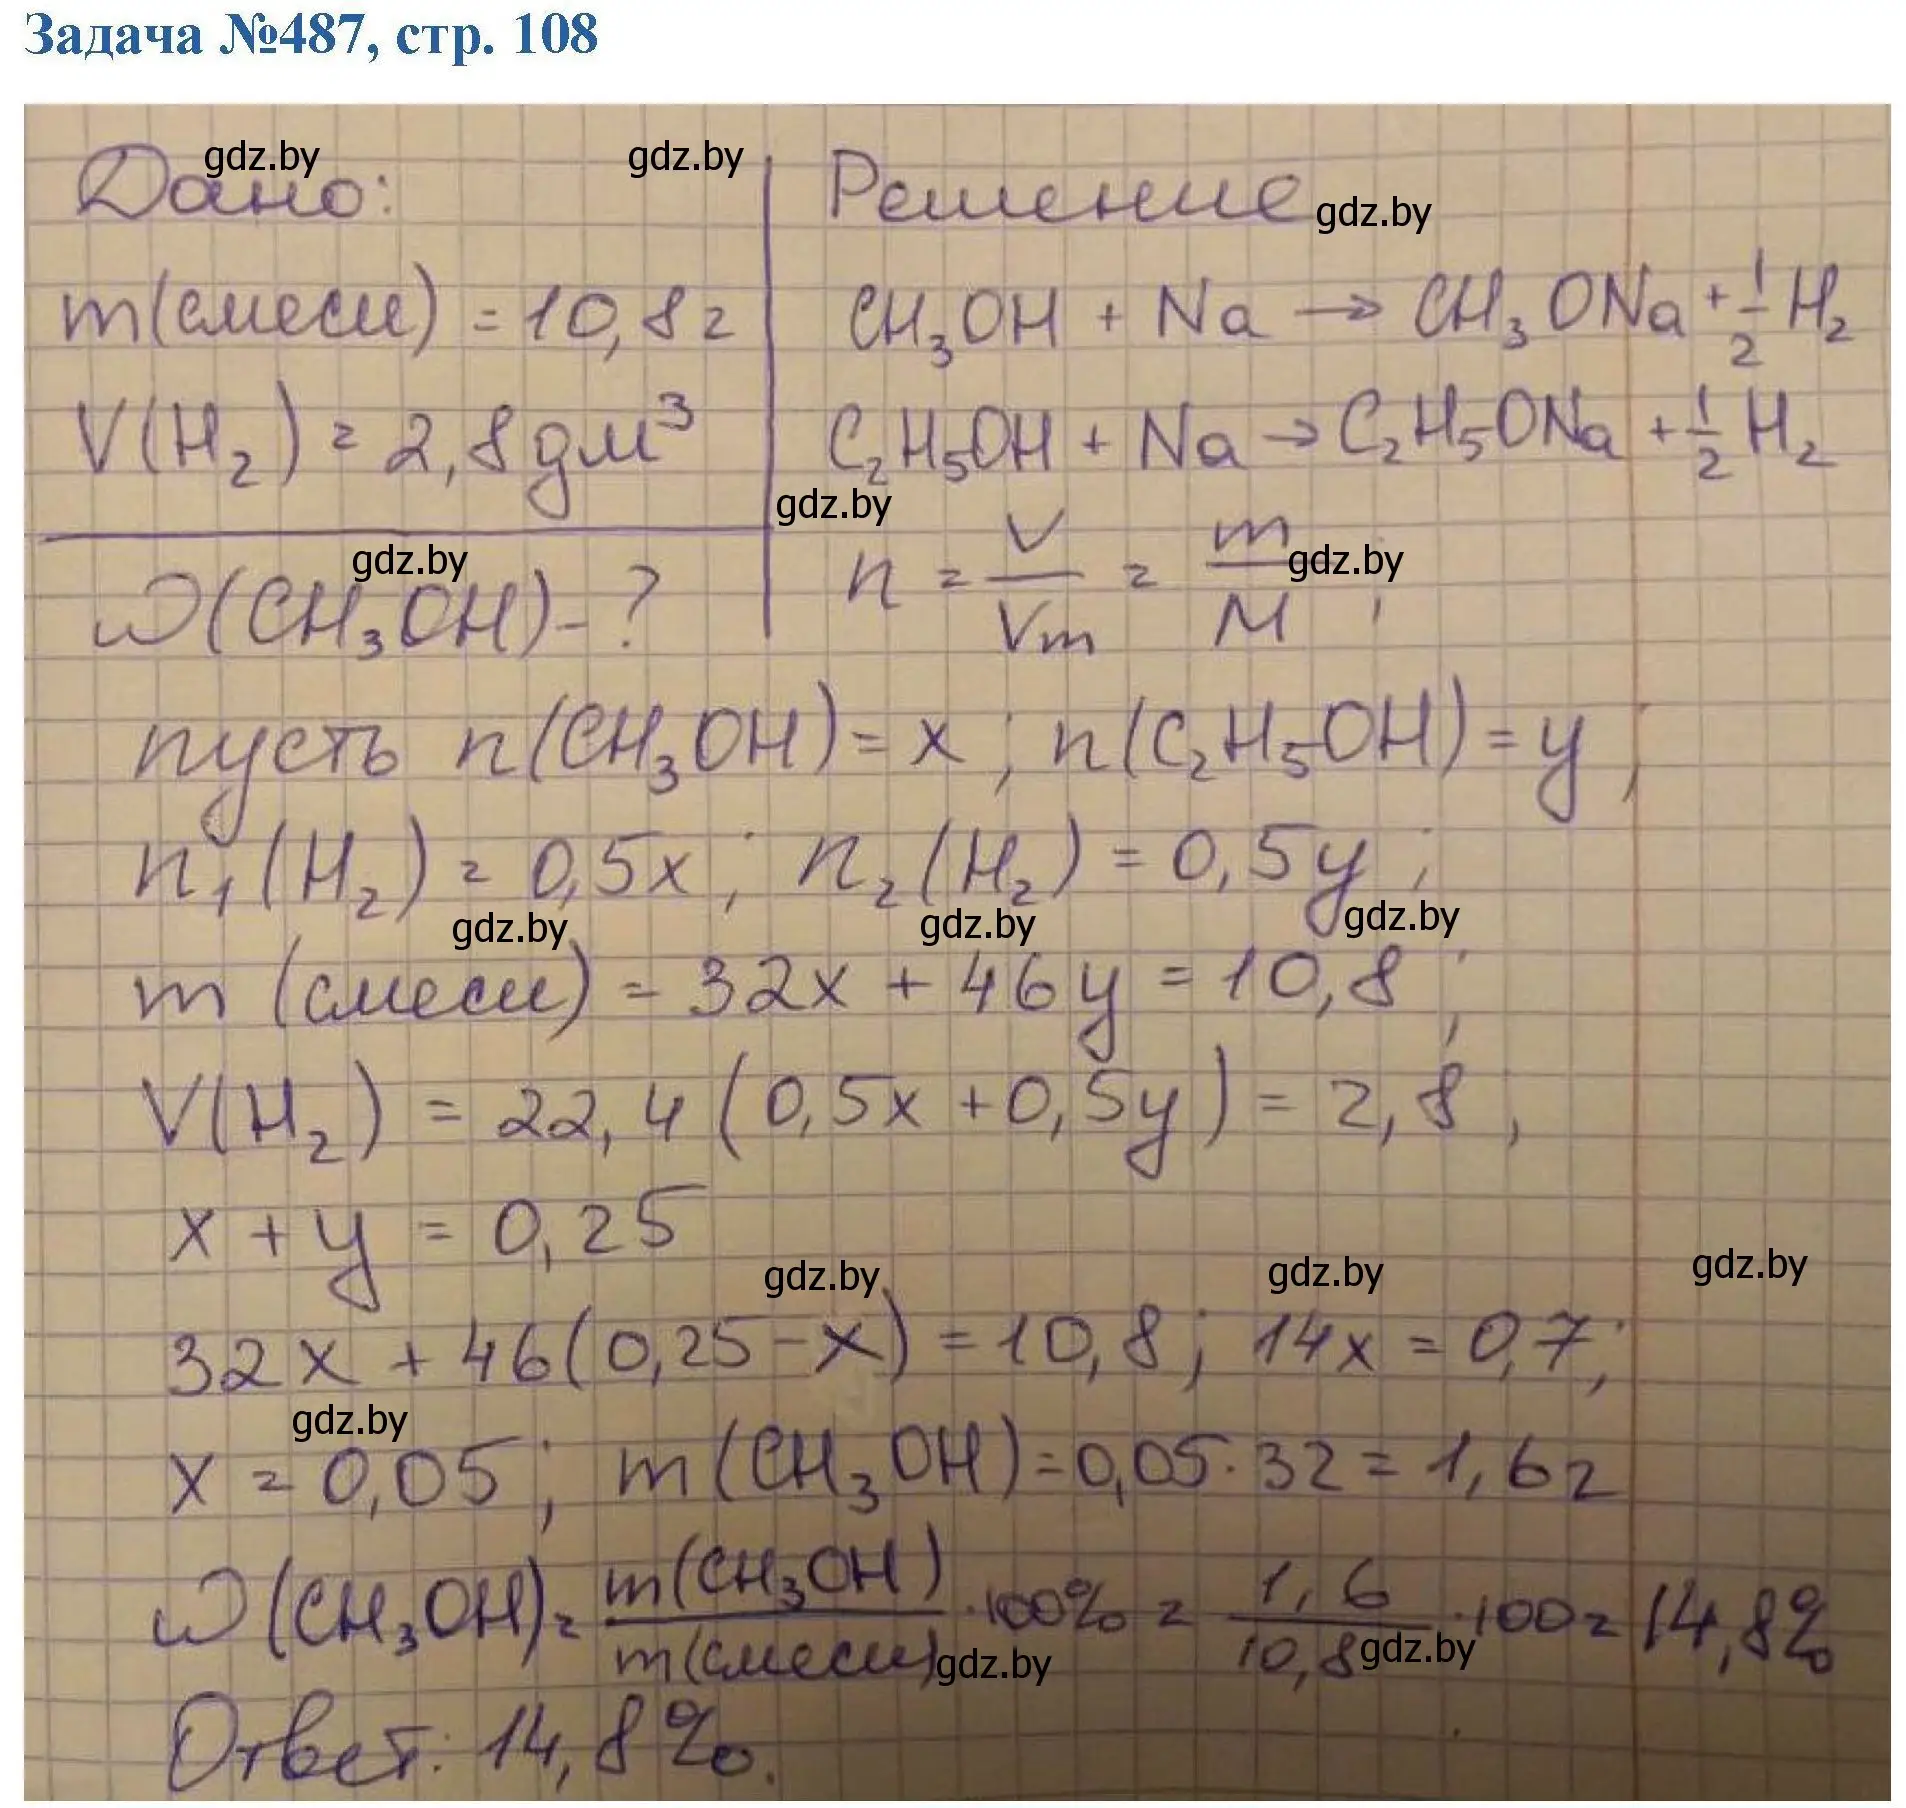 Задача №487, стр. 108
gdz.by gdz.by
Дано: Решение gdz.by
m(смеси) = 10,8г CH₃OH + Na → CH₃ONa + 1/2 H₂
V(H₂) = 2,8дм³ C₂H₅OH + Na → C₂H₅ONa + 1/2 H₂
gdz.by
gdz.by gdz.by
ω(CH₃OH) - ? n = V/Vm = m/M ;
пусть n(CH₃OH) = x ; n(C₂H₅OH) = y ;
n₁(H₂) = 0,5x ; n₂(H₂) = 0,5y ;
gdz.by gdz.by gdz.by
m (смеси) = 32x + 46y = 10,8 ;
V(H₂) = 22,4 (0,5x + 0,5y) = 2,8 ,
x + y = 0,25
gdz.by gdz.by gdz.by
32x + 46(0,25 - x) = 10,8 ; 14x = 0,7 ;
gdz.by
x = 0,05 ; m(CH₃OH) = 0,05 · 32 = 1,6г
ω(CH₃OH) = m(CH₃OH)/m(смеси) · 100% = 1,6/10,8 · 100 = 14,8%
gdz.by gdz.by
Ответ: 14,8%.